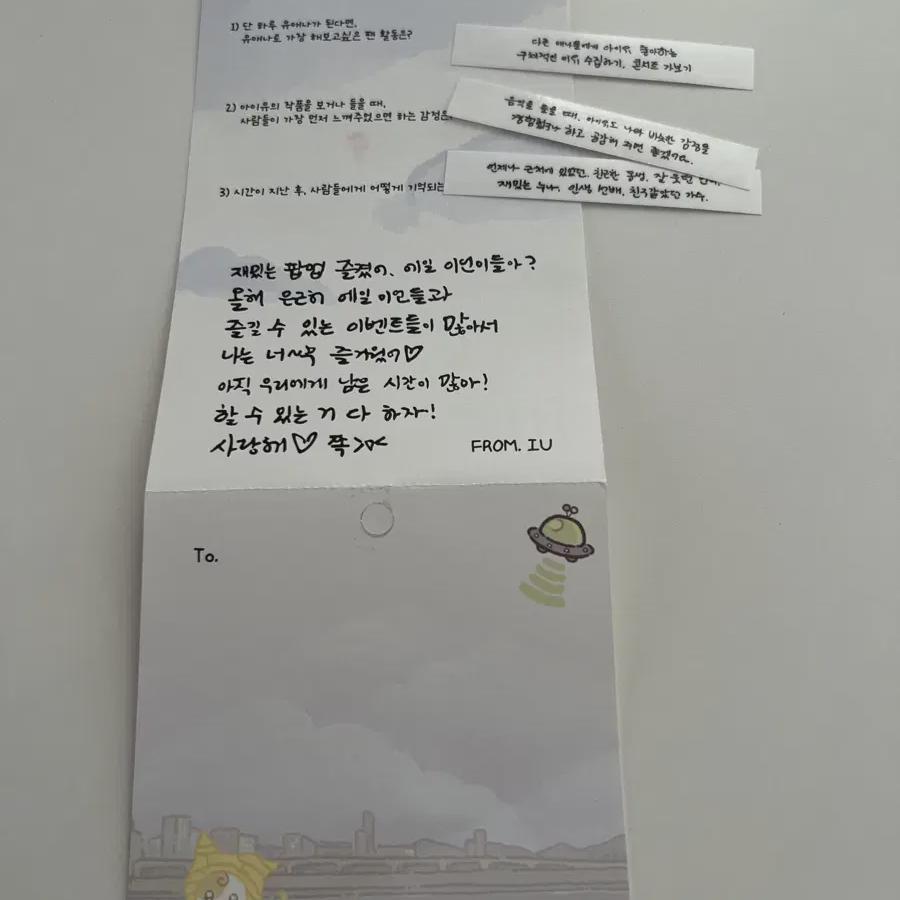 1) 단 하루 유애나가 된다면,
유애나로 가장 해보고싶은 팬 활동은?
다른 애나들에게 아이유 좋아하는
구체적인 이유 수집하기, 콘서트 가보기
2) 아이유의 작품을 보거나 들을 때,
사람들이 가장 먼저 느껴주었으면 하는 감정은
음악을 들을 때, 아이유도 나와 비슷한 감정을
경험했구나 하고 공감해 주면 좋겠어요.
3) 시간이 지난 후, 사람들에게 어떻게 기억되는
언제나 근처에 있었던, 친근한 동생, 잘 웃던
재밌는 누나, 인생 선배, 친구같았던 가수.
재밌는 팝업 즐겼어, 에일이언이들아?
올해 은근히 에일이언들과
즐길 수 있는 이벤트들이 많아서
나는 너~무 즐거웠어♡
아직 우리에게 남은 시간이 많아!
할 수 있는 거 다 하자!
사랑해♡ 쪽><
FROM. IU
To.